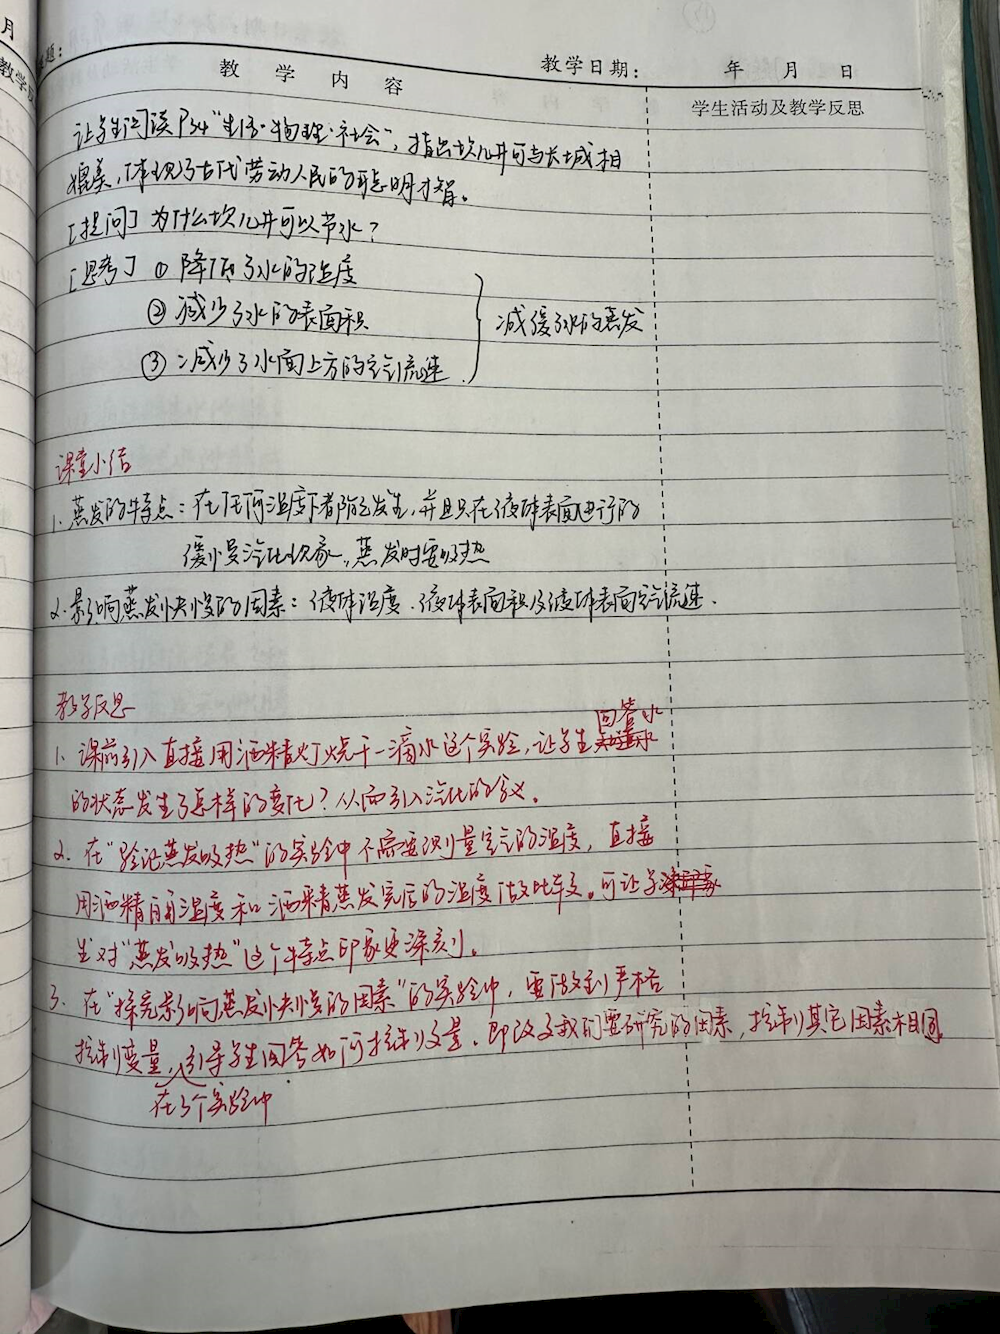 月
教学反
题：
教学日期： 年 月 日
教学内容
学生活动及教学反思
让学生阅读P34“生活·物理·社会”，指出坎儿井可与长城相
媲美，体现了古代劳动人民的聪明才智。
[提问] 为什么坎儿井可以节水？
[思考] ① 降低了水的温度
② 减少了水的表面积
③ 减少了水面上方的空气流速
减缓了水的蒸发
课堂小结
1. 蒸发的特点：在任何温度下都能发生，并且只在液体表面进行的
缓慢汽化现象，蒸发时要吸热
2. 影响蒸发快慢的因素：液体温度、液体表面积及液体表面空气流速．
教学反思
1. 课前引入直接用酒精灯烧干一滴水这个实验，让学生回答水
的状态发生了怎样的变化？从而引入汽化的含义。
2. 在“验证蒸发吸热”的实验中不需要测量空气的温度，直接
用酒精自身温度和酒精蒸发完后的温度做比较。可让学
生对“蒸发吸热”这个特点印象更深刻。
3. 在“探究影响蒸发快慢的因素”的实验中，要做到严格
控制变量，引导学生回答如何控制变量，即改变我们要研究的因素，控制其它因素相同
在3个实验中